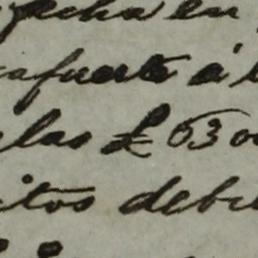 fecha en
afuerte á
las £ 6300
itos deb